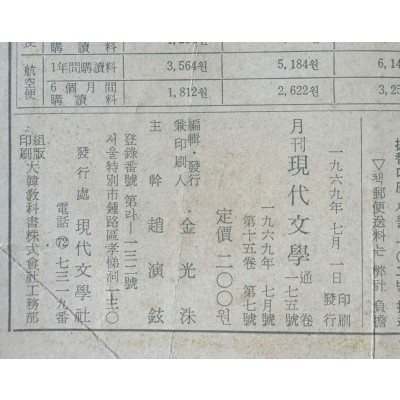 購讀料
航空便
1年間購讀料 3,564원 5,184원 6,14
6個月間購讀料 1,812원 2,622원 3,25
▽책郵便送料는 弊社 負擔
一九六九年 七月 一日 印刷 發行
月刊 現代文學 通卷 一七五號
一九六九年 七月號
第十五卷 第七號
定價 二〇〇원
編輯・發行 兼印刷人 金光洙
主幹 趙演鉉
登錄番號 第라—一三二號
서울特別市鍾路區孝悌洞
發行處 現代文學社
電話 72 七三一九番
組版 印刷 大韓敎科書株式會社工務部